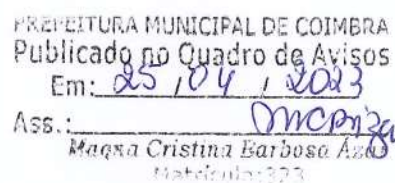 PREFEITURA MUNICIPAL DE COIMBRA
Publicado no Quadro de Avisos
Em: 25 / 04 / 2023
Ass.:
Magna Cristina Barbosa
Matrícula: 323